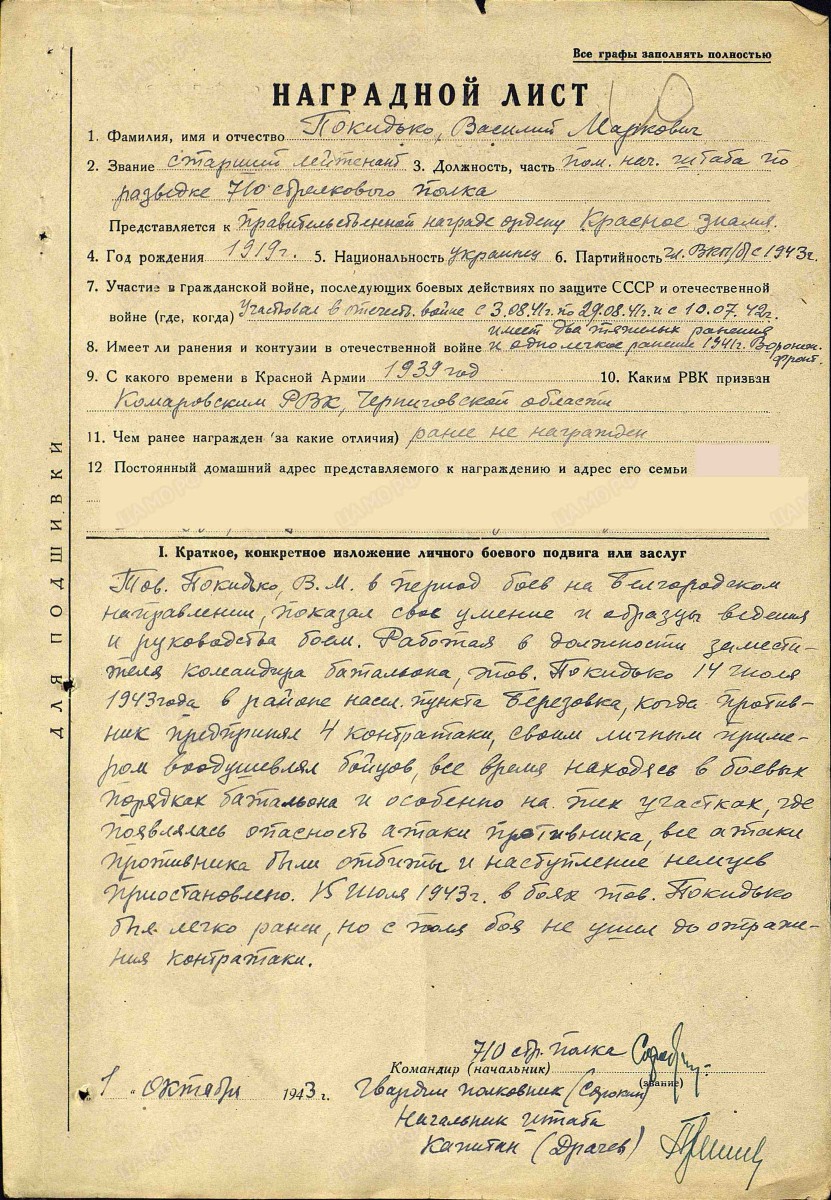 Все графы заполнять полностью
НАГРАДНОЙ ЛИСТ
1. Фамилия, имя и отчество Покидько, Василий Маркович
2. Звание старший лейтенант 3. Должность, часть пом. нач. штаба по
разведке 710 стрелкового полка
Представляется к правительственной награде ордену Красное знамя.
4. Год рождения 1919г. 5. Национальность украинец 6. Партийность чл. ВКП/б/ с 1943г.
7. Участие в гражданской войне, последующих боевых действиях по защите СССР и отечественной
войне (где, когда) Участвовал в отечеств. войне с 3.08.41г. по 29.08.41г. и с 10.07.42г.
имеет два тяжелых ранения
8. Имеет ли ранения и контузии в отечественной войне и одно легкое ранение 1941г. Воронеж.
фронт.
9. С какого времени в Красной Армии 1939 год 10. Каким РВК призван
Комаровским РВК, Черниговской области
11. Чем ранее награжден (за какие отличия) ранее не награжден
12 Постоянный домашний адрес представляемого к награждению и адрес его семьи
I. Краткое, конкретное изложение личного боевого подвига или заслуг
Тов. Покидько, В.М. в период боев на Белгородском
направлении, показал свое умение и образцы ведения
и руководства боем. Работая в должности замести-
теля командира батальона, тов. Покидько 14 июля
1943 года в районе насел. пункта Березовка, когда против-
ник предпринял 4 контратаки, своим личным приме-
ром воодушевлял бойцов, все время находясь в боевых
порядках батальона и особенно на тех участках, где
появлялась опасность атаки противника, все атаки
противника были отбиты и наступление немцев
приостановлено. 15 июля 1943г. в боях тов. Покидько
был легко ранен, но с поля боя не ушел до отраже-
ния контратаки.
710 стр. полка
Командир (начальник)
(звание)
"1" октября 1943 г. Гвардии полковник (Сорокин)
Начальник штаба
Капитан (Драчев)
ДЛЯ ПОДШИВКИ